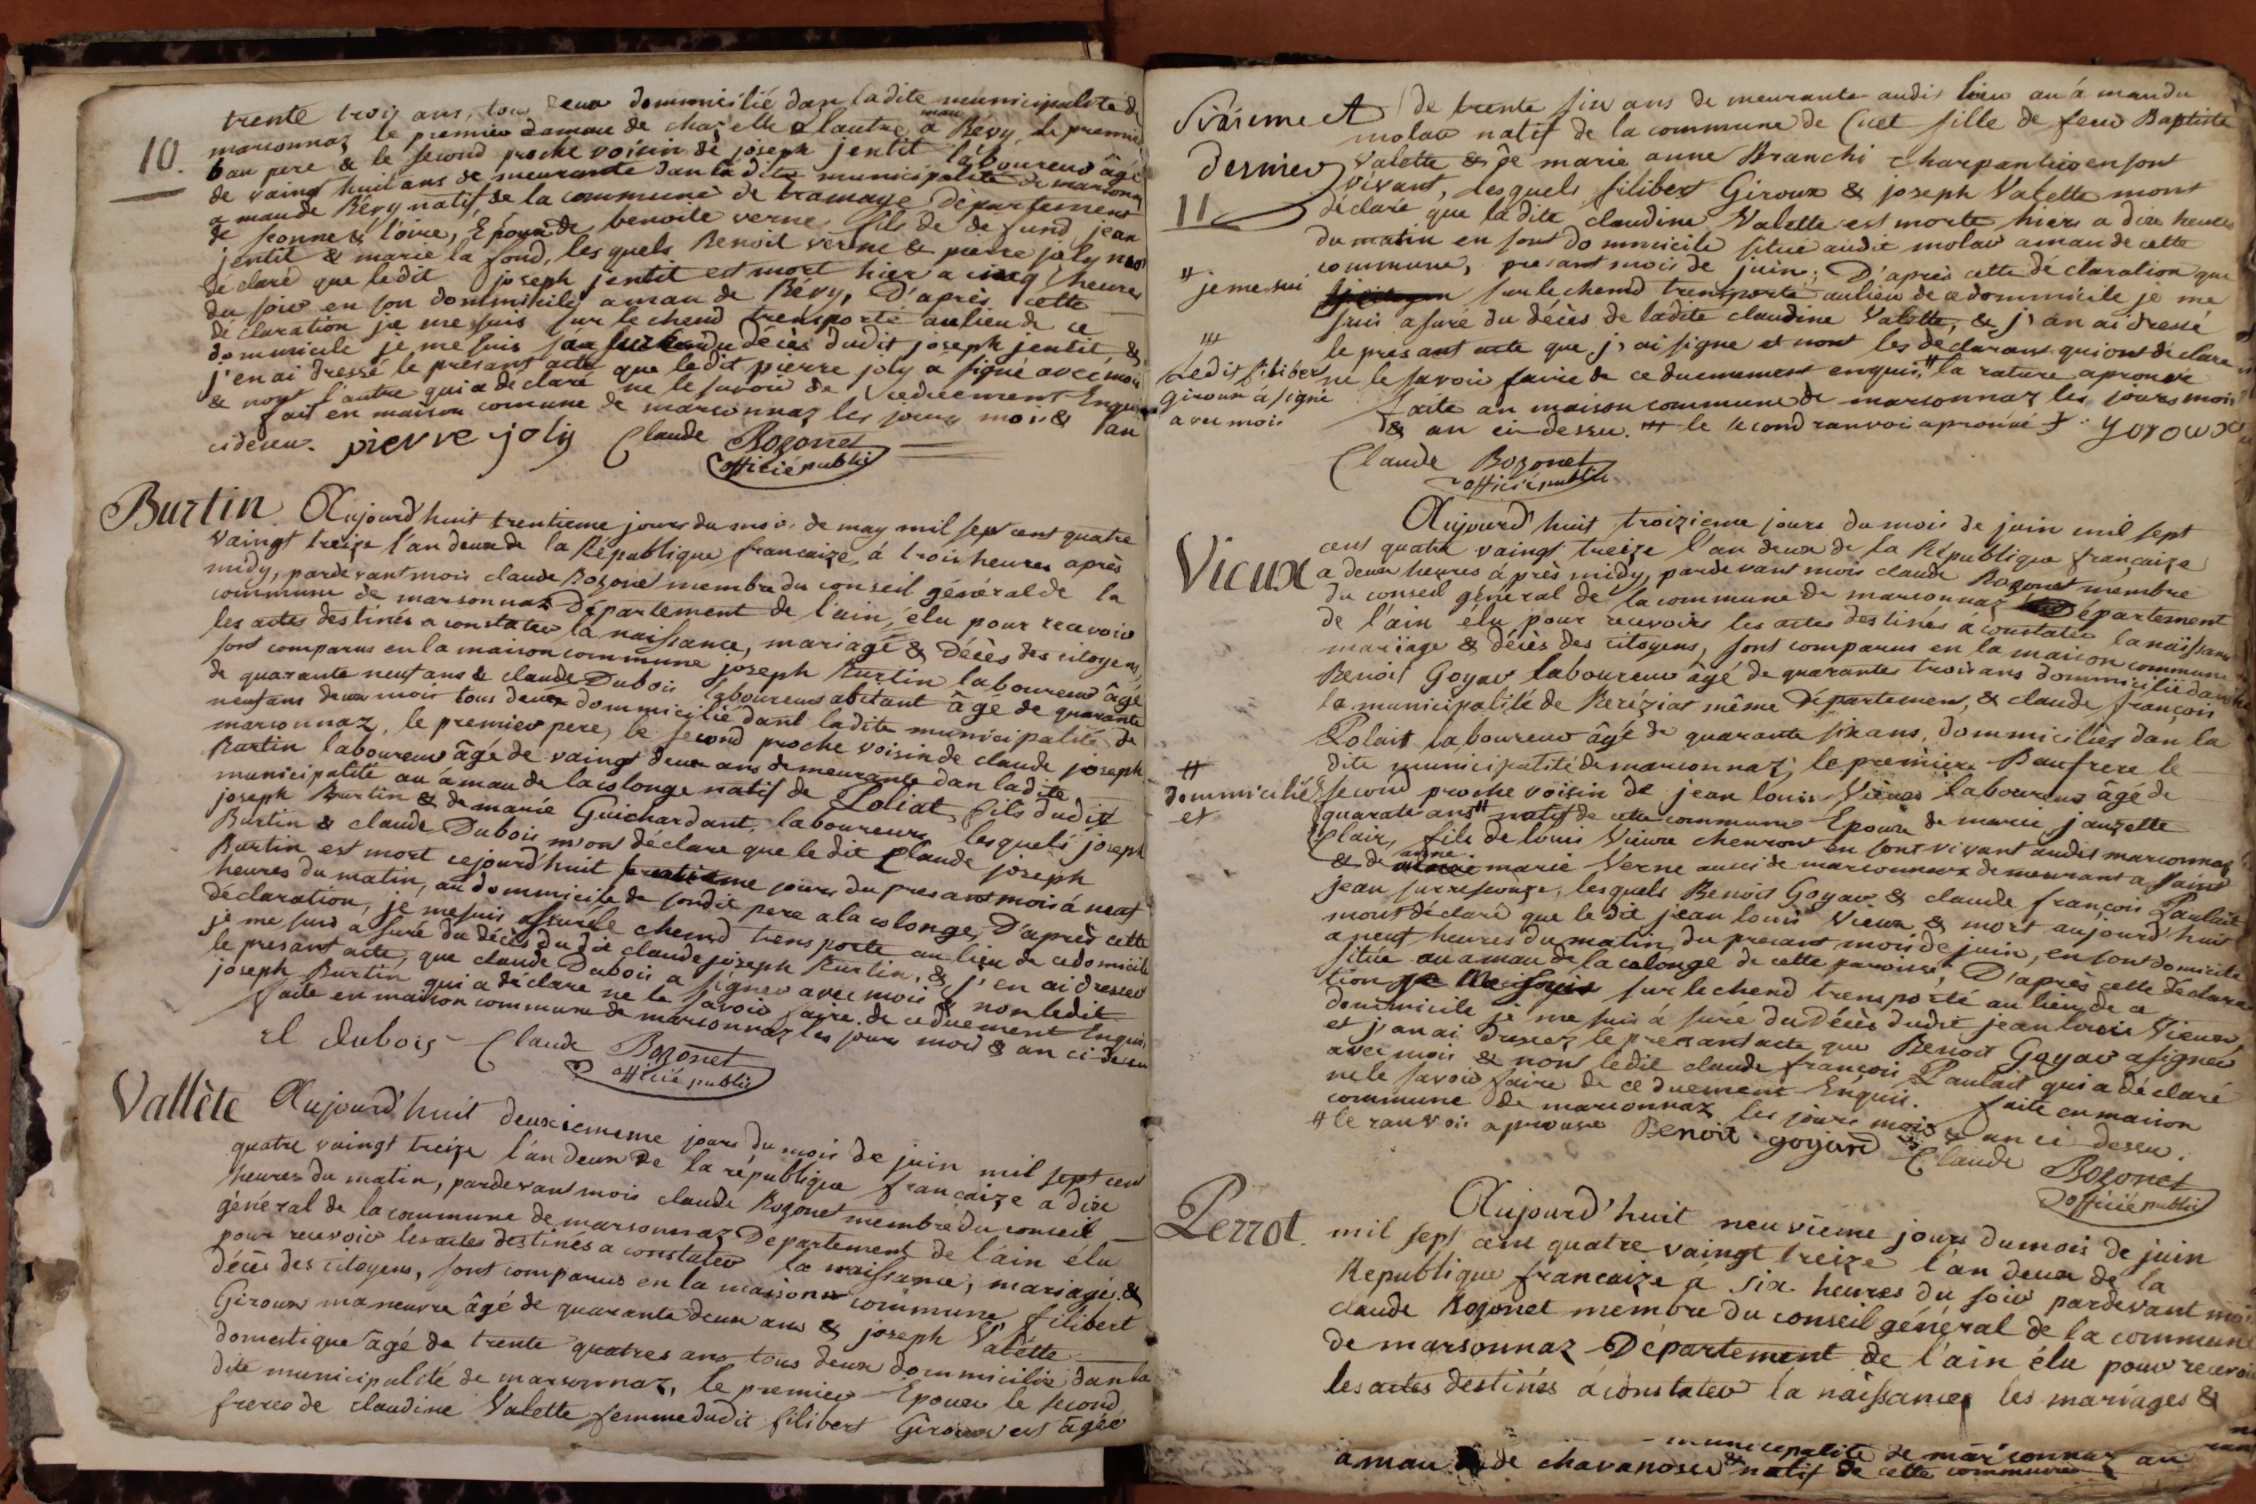 10.
trente trois ans, tou deux dommicilié dan ladite municipalité de
marsonnaz le premier damau de chaselle & lautre a mau Révy le premier
bau pere & le second proche voisin de joseph jentit laboureur âgé
de vaingt huit ans de meurante dan ladite municipalité de marsonnaz
a mau de Révy natif de la commune de tramaye Département
de seonne & loire, Epoux de benoite verne, fils de de fund jean
jentit & marie la fond, les quels Benoit verne & pierre joly mon
de claré que ledit joseph jentit est mort hier a cinq heures
du soir en son dommicile a mau de Révy, D'après cette
de claration je me suis sur le chend transporté au lieu de ce
dommicile je me suis du décès dudit joseph jentit &
j'en ai dressé le présant acte que ledit pierre joly a signé avec moi
& nont l'autre qui a de claré ne le savoir de ceduement Enquis
fait en maison comune de marsonnaz les jours mois & an
cidessu. pierre joly Claude Bozonet
officié public
Burtin Aujourd'huit trentieme jours du mois de may mil sept cent quatre
vaingt treize l'an deux de la République francaize, á trois heures après
midy, pardevant mois claude Bozonet membre du conseil général de la
commune de marsonnaz Département de l'ain, élu pour recevoir
les actes destinés a constater la naissance, mariage & Décès des citoyens,
sont comparus en la maison commune joseph Burtin laboureur âgé
de quarante neuf ans & claude Dubois laboureur abitant âgé de quarante
neuf ans deux mois tous deux dommicilié dant ladite municipalité de
marsonnaz, le premier pere, le second proche voisin de claude joseph
Burtin laboureur âgé de vaingt deux ans demeurante dan ladite
municipalité au á mau de la colonge natif de Foliat fils dudit
joseph Burtin & de marie Guichardant, laboureurs, lesquels joseph
Burtin & claude Dubois m'ont déclare que le dit claude joseph
Burtin est mort cejourd'huit trentieme jours du presant mois á neuf
heures du matin, au dommicile de sondit pere a la colonge, D'après cette
déclaration, je me suis sur le chemd transporte au lieu de ce domicile
je me suis a suré du décès du dit claude joseph Burtin, & j'en ai dressé
le presant acte, que claude Dubois a signer avec mois & non ledit
joseph Burtin qui a déclare ne le savoir faire de ce duement Enquis
faite en maison commune de marsonnaz les jours mois & an ci dessu
cl dubois Claude Bozonet
officié public
Vallète Aujourd'huit deuxiememe jours du mois de juin mil sept cent
quatre vaingt treize l'an deux de la république francaize a dixe
heures du matin, pardevant mois claude Bozonet membre du conseil
général de la commune de marsonnaz Département de l'ain élu
pour recevoir les actes destinés a constater la naissance, mariage &
décès des citoyens, sont comparus en la maison commune filibert
Giroux maneuvre âgé de quarante deux ans & joseph Valette
domestique âgé de trente quatres ans tous deux dommicilié dan la
dite municipalité de marsonnaz, le premier Epoux le second
freres de claudine Valette femme dudit filibert Giroux est âgée
Sixieme et
dernier
11
de trente six ans de meurante audit lieu au á mau du
molar natif de la commune de Cuet fille de feue Baptiste
Valette & de marie anne Branchi charpantier en sont
vivant, lesquels filibert Giroux & joseph Valette mont
déclaré que ladite claudine Valette est morte hier a dix heures
du matin en sont dommicile situé audit molar a mau de cette
commune, presant mois de juin; D'après cette dé claration que
" je me sui
sur le chemd transporté au lieu de ce dommicile je me
suis asuré du décès de ladite claudine Valette, & j'an ai dressé
le presant acte que j'ai signe et nont les déclarant qui ont déclare
ne le savoir faire de ce duemement enquis, " la rature aprouve
"' Ledit filibert
Giroux á signé
avec mois
Faite an maison commune de marsonnaz les jours mois
& an ci dessu. "' le second ranvoi aprouvé
Claude Bozonet
officié public
Vieux
Aujourd'huit troizieme jours du mois de juin mil sept
cent quatre vaingt treize l'an deux de la République françaize
a deux heures á près midy, pardevant mois claude Bozonet mémbre
du conseil général de la commune de marsonnaz Département
de l'ain élu pour recevoirs les actes destinés á constater la naissance
mariage & décès des citoyens, sont comparus en la maison commune
Benoit Goyar laboureur âgé de quarante trois ans dommicilié dan
la municipalité de Beréziat même Département, & claude françois
Polait laboureur âgé de quarante six ans, dommiciliés dan la
dite municipalité de marsonnaz, le première Baufrere le
second proche voisin de jean louis Vieux laboureur âgé de
"
dommicilié
et
quarate ans " natif de cette commune Epoux de marie jauzette
Clair, fils de louis Vieux cheuront en sont vivant audit marsonnaz
& de anne marie Verne aussi de marsonnaz demeurant a Saint
jean sur resouze, lesquels Benoit Goyar & claude françois Paulait
mont déclaré que le dit jean louis Vieux & mort aujourd'huit
a neuf heures du matin, du presant mois de juin, en sont domicile
situé au a mau de la colonge de cette paroisse, D'après cette déclara
tion je me suis sur le chemd transporté au lieu de a
dommicile je me suis a suré du Décès dudit jean louis Vieux,
et j'an ai dressez le presant acte que Benoit Goyar a signer
avec mois & nont ledit claude françois Paulait qui a déclaré
ne le savoir faire de ce duement Enquis. faite en maison
commune de marsonnaz les jours mois & an ci dessu.
" le ranvois aprouve Benoit goyard Claude Bozonet
officié public
Perrot.
Aujourd'huit neuvieme jours du mois de juin
mil sept cent quatre vaingt treize l'an deux de la
République francaize á six heures du soir pardevant moi
claude Bozonet mémbre du conseil général de la commune
de marsonnaz Département de l'ain élu pour recevoir
les actes destinés á constater la naissance les mariages &
municipalité de marsonnaz au
a mau de chavanosse & natif de cette commune